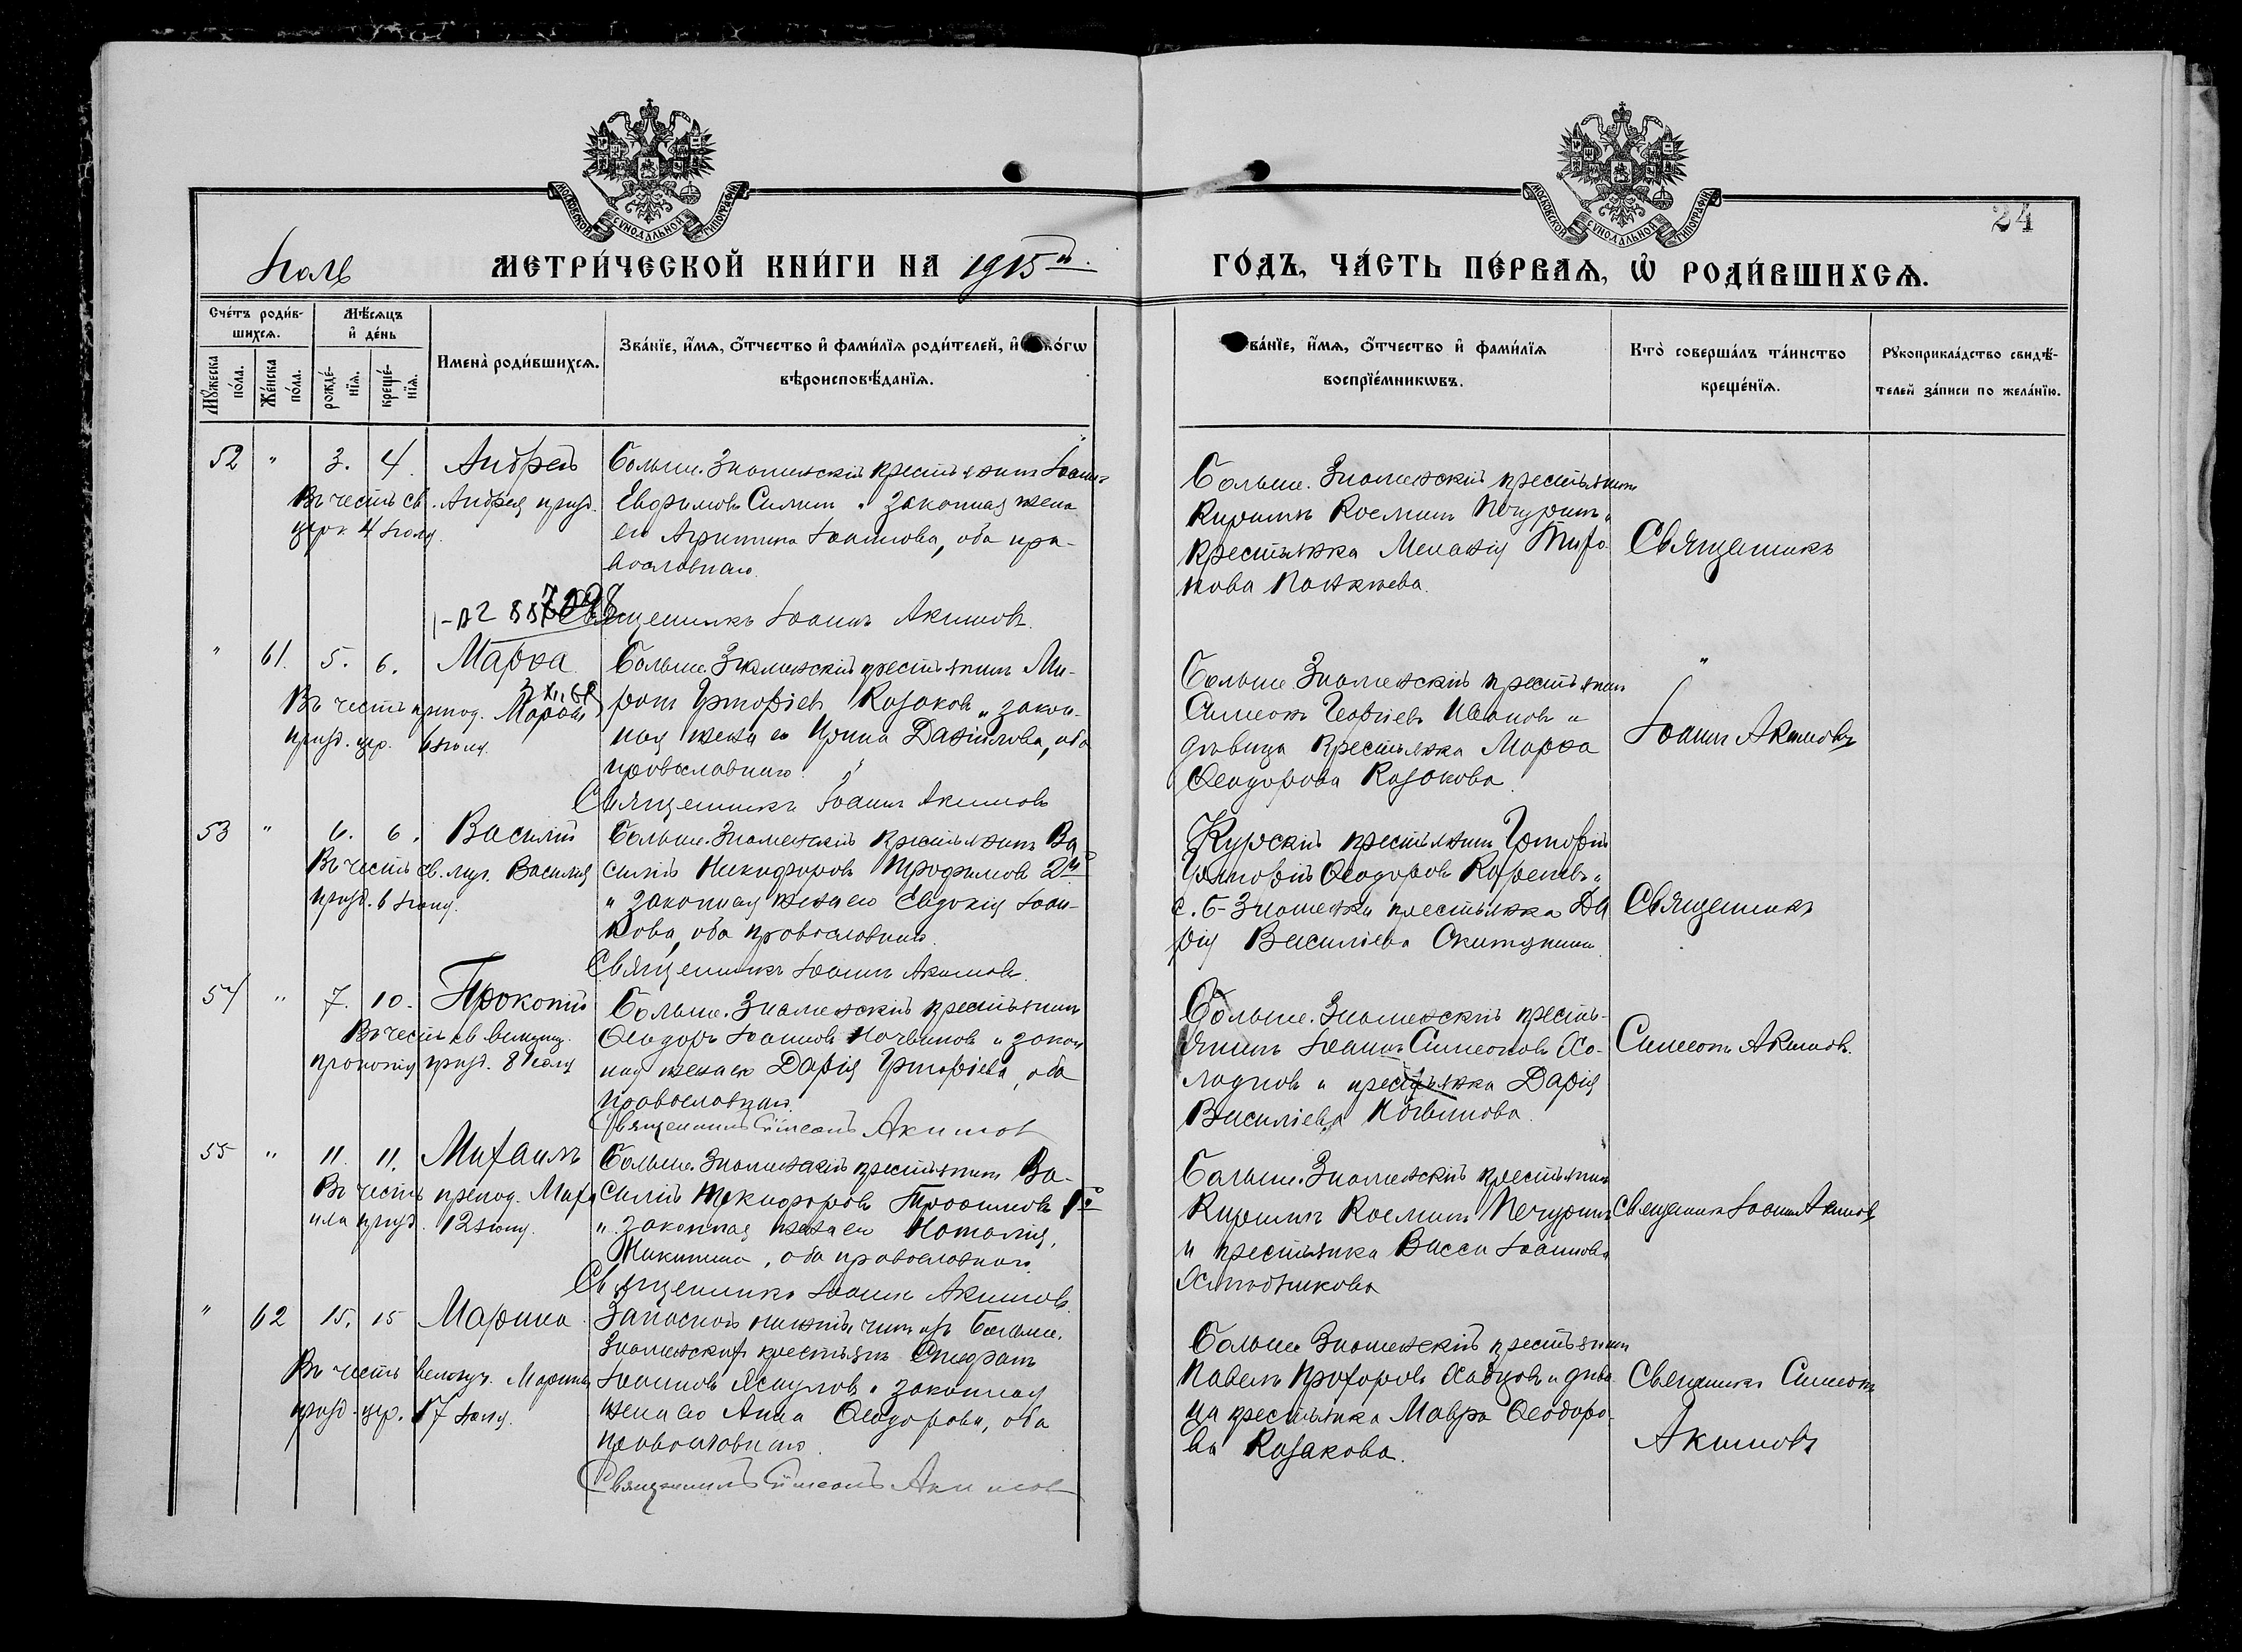 24
Іюль МЕТРИ́ЧЕСКОЙ КНИ́ГИ НА 1915й
ГО́ДЪ, ЧА́СТЬ ПЕ́РВАѦ, Ѡ҆ РОДИ́ВШИХСѦ.
Сче́тъ роди́в-
шихсѧ.
Мѣ́сѧцъ
и҆ де́нь
Мꙋ́жеска
по́ла.
Же́нска
по́ла.
рожде́-
нїѧ.
креще́-
нїѧ.
Имена̀ роди́вшихсѧ.
Зва́нїе, и҆́мѧ, ѻ҆́тчество и҆ фами́лїѧ роди́телей, и҆
вѣроисповѣ́данїѧ.
ва́нїе, и҆́мѧ, ѻ҆́тчество и҆ фами́лїѧ
воспрїе́мникѡвъ.
Кто̀ соверша́лъ та́инство
креще́нїѧ.
Рꙋкоприкла́дство свидѣ́-
телей за́писи по жела́нїю.
52 " 3. 4. Андрей
Въ честь св. Андрея празд.
церк. 4 Іюля.
Больше-Знаменскій крестьянинъ Іоаннъ
Евфимовъ Силинъ и законная жена
его Агрипина Іоаннова, оба пра-
вославнаго.
Священникъ Іоаннъ Акимовъ.
Больше-Знаменскій крестьянинъ
Кириллъ Косминъ Печуринъ и
крестьянка Меланія Тихо
нова
Священникъ
" 61. 5. 6. Марѳа
Въ честь препод. Марѳы
празд. цер. 6 Іюля.
Больше-Знаменскій крестьянинъ Ми-
ронъ Григоріевъ Казаковъ и закон-
ная жена его Ирина Даніилова, оба
православнаго.
Священникъ Іоаннъ Акимовъ
Больше-Знаменскій крестьянинъ
Симеонъ Георгіевъ Ивановъ и
дѣвица крестьянка Марѳа
Ѳеодорова Казакова.
Іоаннъ Акимовъ
53 " 6. 6. Василій
Въ честь св. муч. Василія
празд. 6 Іюля.
Больше-Знаменскій крестьянинъ Ва
силій Никифоровъ Трофимовъ 2й
и законная жена его Евдокія Іоан-
нова, оба православнаго.
Священникъ Іоаннъ Акимовъ.
Курскій крестьянинъ Григорій
Григорій Ѳеодоровъ и
с. Б-Знаменки крестьянка Да
рія Василіева
Священникъ
54 " 7. 10. Прокопій
Въ честь св. великомуч.
Прокопія празд. 8 Іюля
Больше-Знаменскій крестьянинъ
Ѳеодоръ Іоанновъ и закон
ная жена его Дарія Григоріева, оба
православнаго.
Священникъ Симеонъ Акимовъ
Больше-Знаменскій кресть-
янинъ Іоаннъ Симеоновъ Хо-
лодновъ и крестьянка Дарія
Василіева
Симеонъ Акимовъ.
55 " 11. 11. Михаилъ
Въ честь препод. Миха
ила празд. 12 Іюля.
Больше-Знаменскій крестьянинъ Ва-
силій Никифоровъ Трофимовъ 1й
и законная жена его Наталія
Никитина, оба православнаго.
Священникъ Іоаннъ Акимовъ.
Больше-Знаменскій крестьянинъ
Кириллъ Косминъ Печуринъ
и крестьянка Васса Іоаннова
Священникъ Іоаннъ Акимовъ
" 62 15. 15 Марина
Въ честь великомуч. Марины
празд. цер. 17 Іюля.
Запасной нижній чинъ изъ Больше-
Знаменскихъ крестьянъ
Іоанновъ Ясауловъ и законная
жена его Анна Ѳеодорова, оба
православнаго.
Священникъ Симеонъ Акимовъ
Больше-Знаменскій крестьянинъ
Павелъ Прохоровъ и дѣви
ца крестьянка Мавра Ѳеодоро-
ва Казакова.
Священникъ Симеонъ
Акимовъ